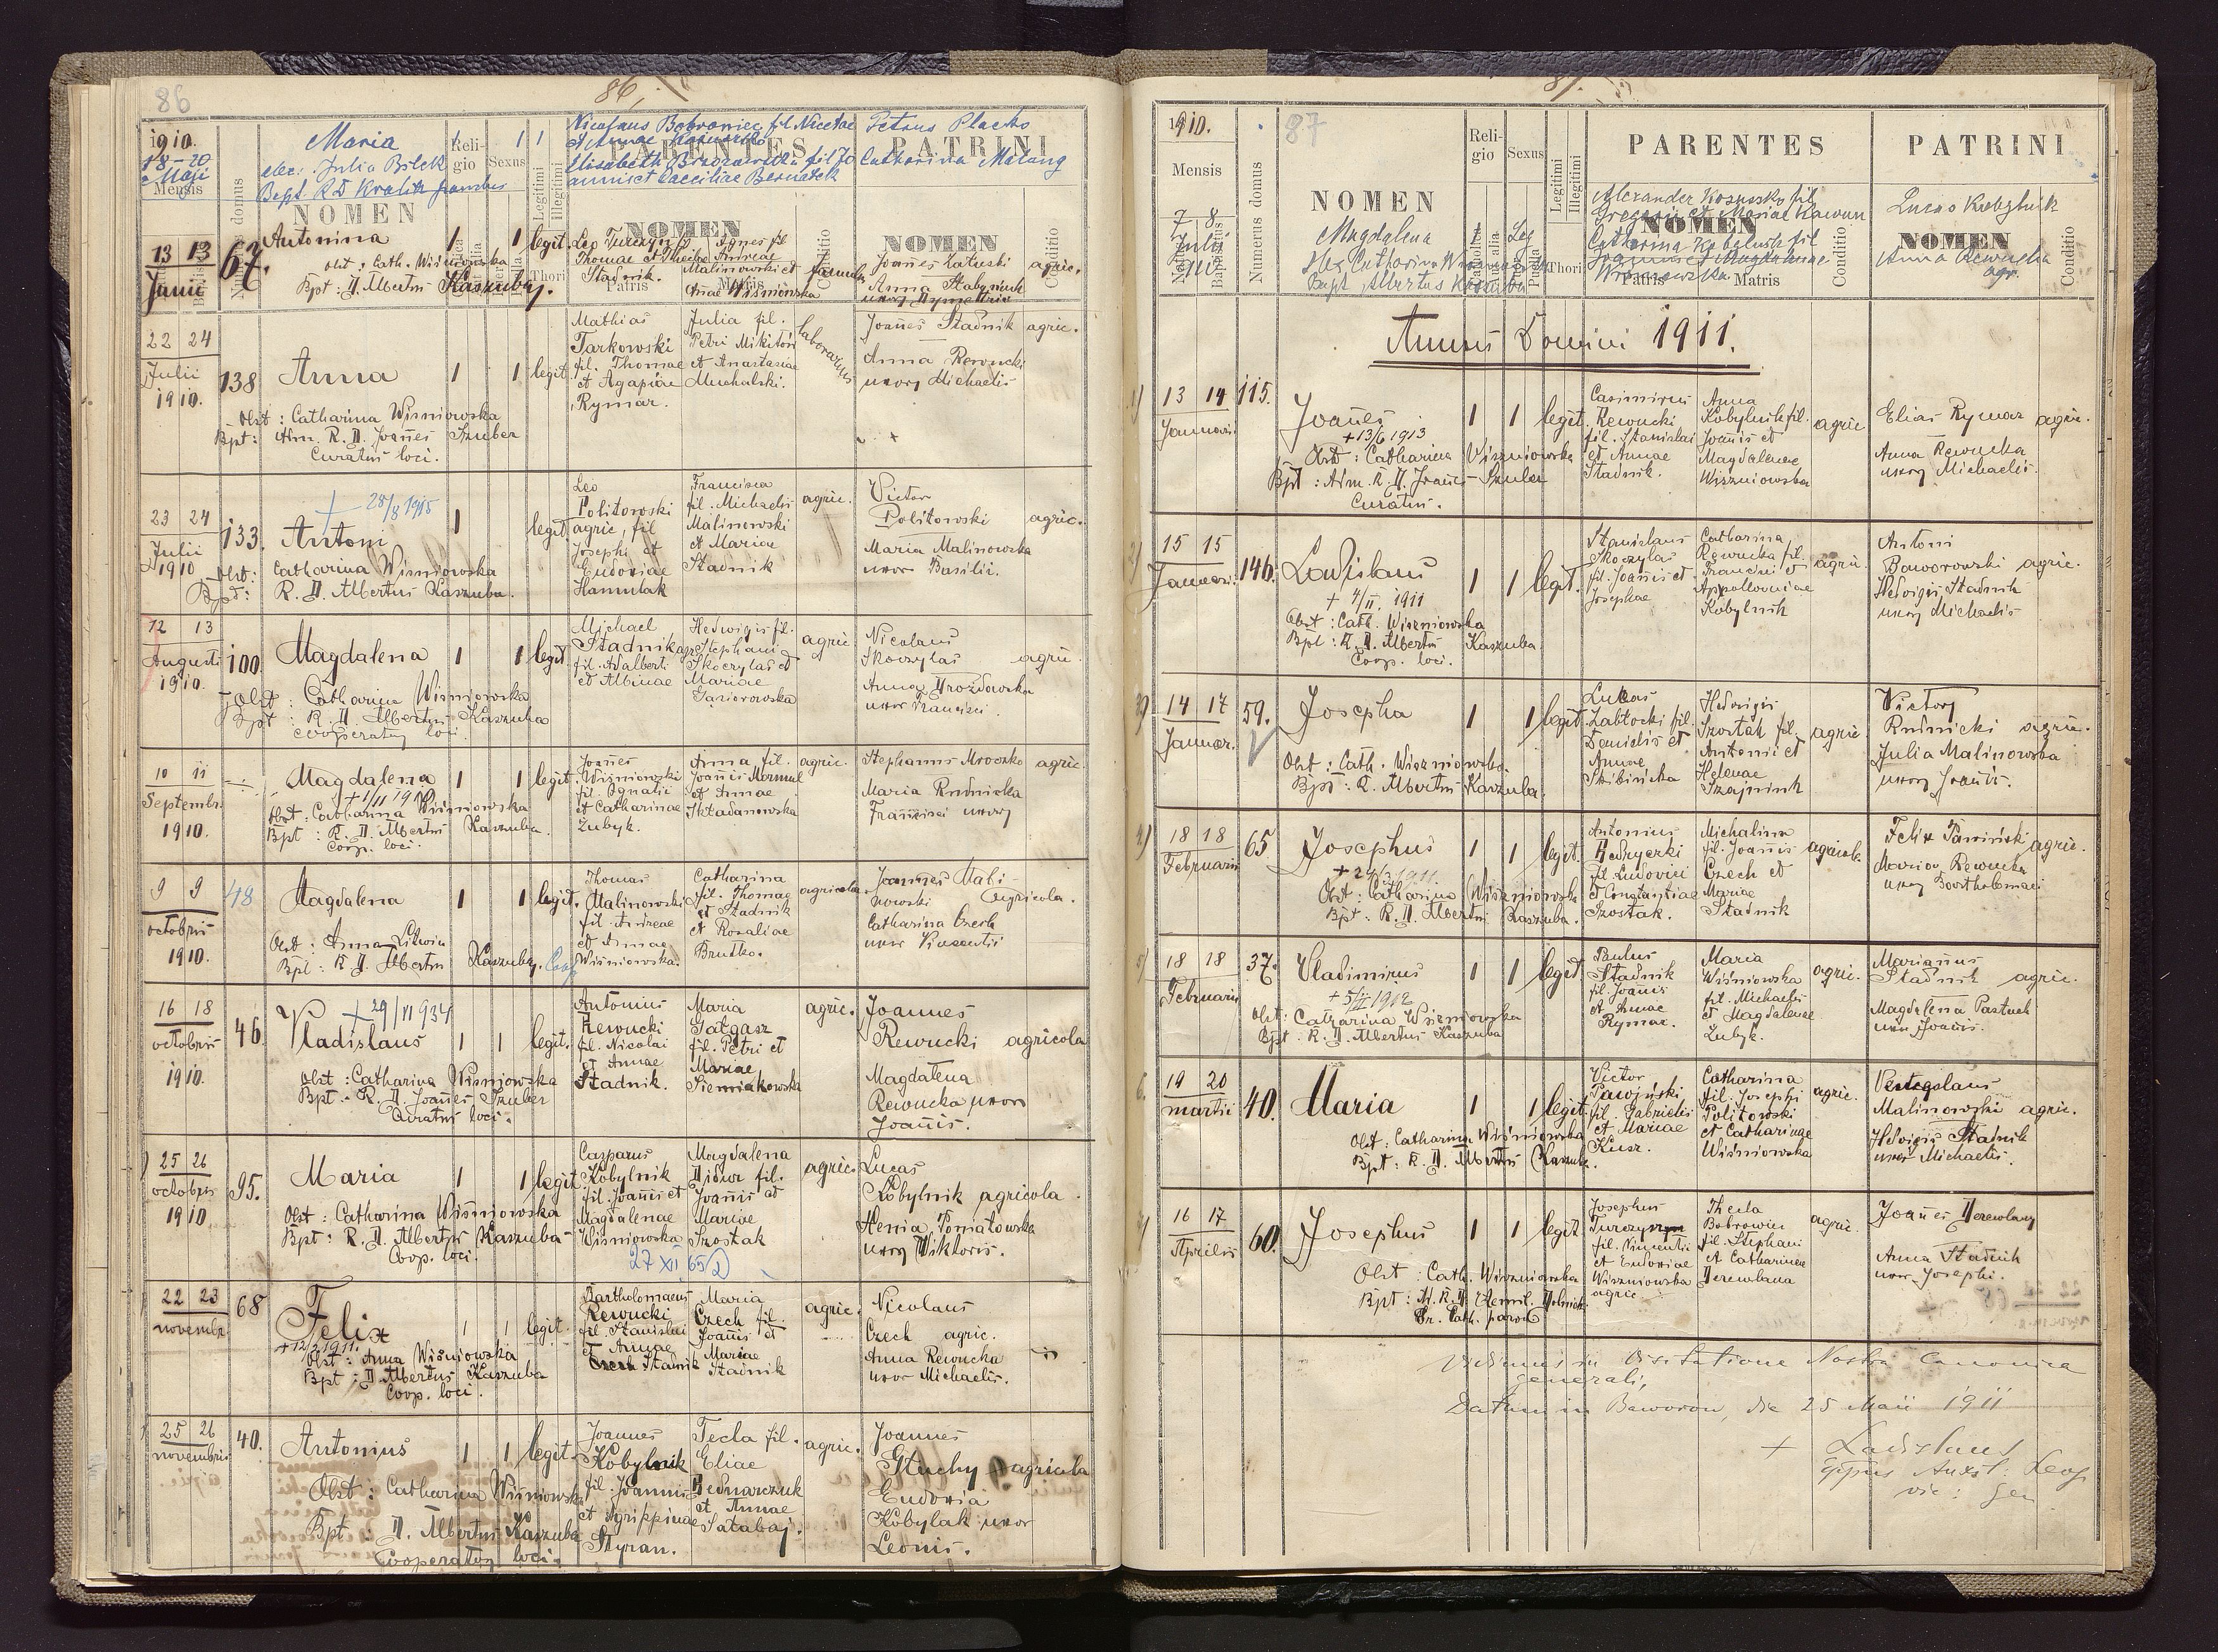 86
86,
1910.
18-20
Maji
Mensis
Numerus domus
Maria
obst. Julia Bilek
Bapt. R D Kralik
NOMEN
Religio
Sexus
1 1
Legitimi
Illegitimi
Thori
Nicolaus Bobrowiec fil Nicetae
et Annae
Elisabeth fil Jo
annis et Caeciliae Bernatek
PARENTES
NOMEN
Patris
Matris
Conditio
Petrus Placko
Catharina
PATRINI
NOMEN
Conditio
13 13
Junii
67.
Antonina
Obst: Cath. Wiśniowska
Bpt: D. Albertus Kaszuba
1 1 legit.
Leo Turczyn
Thomae et Theclae
Stadnik.
Agnes fil
Andreae
Malinowski et
Annae Wiśniowska
Joannes Załuski
Anna Kobylnik
agric.
22 24
Julii
1910.
138
Anna
Obst: Catharina Wiśniowska
Bpt: Adm. R. D. Joannes Szuber
Curatus loci.
1 1 legit.
Mathias
Tarkowski
fil. Thomae
et Agapiae
Rymar.
Julia fil.
Petri Mikitów
et Anastasiae
Muchalski.
laborans
Joannes Stadnik agric.
Anna Rewucki
uxor Michaelis
23 24
Julii
1910
133.
+ 28/8 1915
Antoni
Obst: Catharina Wiśniowska
Bpt: R. D. Albertus Kaszuba.
1 legit.
Leo
Politowski
agric, fil
Josephi et
Eudoxiae
Hamulak
Francisca
fil. Michaelis
Malinowski
et Mariae
Stadnik
agric.
Victor
Politowski agric.
Maria Malinowska
uxor Basilii.
12 13
Augusti
1910.
100.
Magdalena
Obst: Catharina Wiśniowska
Bpt: R. D. Albertus Kaszuba
cooperator loci.
1 1 legit.
Michael
Stadnik
fil. Adalberti
et Albinae
Hedwigis fil.
Stephani
Skoczylas et
Mariae
Gąsiorowska
agric.
Nicolaus
Skoczylas agric.
Anna Drozdowska
uxor Francisci.
10 11
Septembr.
1910.
Magdalena
Obst: Catharina Wiśniowska
Bpt: R. D. Albertus Kaszuba.
Coop. loci.
1 1 legit.
Joannes
Wiśniowski
fil. Ignatii
et Catharinae
Zubyk.
Anna fil.
Joannis
et Annae
Składanowska
agric.
Stephanus Mroczko agric.
Maria Rudnicka
Francisci uxor
9 9
octobris
1910.
48
Magdalena
Obst: Anna Litwin
Bpt: R. D. Albertus Kaszuba. Coop
1 1 legit.
Thomas
Malinowski
fil. Andreae
et Annae
Wiśniowska.
Catharina
fil. Thomae
et Stadnik
et Rosaliae
Brutko.
agricola
Joannes Mali-
nowski Agricola.
Catharina Czech
uxor Vincentii
16 18
octobris
1910.
46.
+ 29/VI 934
Vladislaus
Obst: Catharina Wiśniowska
Bpt: R. D. Joannes Szuber
Curatus loci.
1 1 legit.
Antonius
Rewucki
fil. Nicolai
et Annae
Stadnik.
Maria
Gałgasz
fil. Petri et
Mariae
Siemiakowska
agric.
Joannes
Rewucki agricola
Magdalena
Rewucka uxor
Joannis.
25 26
octobris
1910
95.
Maria
Obst: Catharina Wiśniowska
Bpt: R. D. Albertus Kaszuba
Coop. loci.
1 1 legit.
Casparus
Kobylnik
fil. Joannis et
Magdalenae
Wiśniowska
Magdalena
fil.
Joannis et
Mariae
Szostak
27 XII 65
agric.
Lucas
Kobylnik agricola.
Henia Poniatowska
uxor Wiktoris.
22 23
novembr.
68
Felix
+12/2 1911.
Obst: Anna Wiśniowska
Bpt: D. Albertus Kaszuba
Coop. loci.
1 1 legit.
Bartholomaeus
Rewucki
fil. Stanislai
et Annae
Stadnik
Maria
Czech fil.
Joannis et
Mariae
Stadnik
agric.
Nicolaus
Czech agric.
Anna Rewucka
uxor Michaelis.
25 26
novembris
40.
Antonius
Obst: Catharina Wiśniowska
Bpt: D. Albertus Kaszuba
Cooperator loci.
1 1 legit.
Joannes
Kobylnik
fil. Joannis
et Agrippinae
Styran.
Tecla fil.
Eliae
Bednarczuk
et Annae
Satabaj.
agric.
Joannes
Głuchy agricola
Eudoxia
Kobylak uxor
Leonis.
87
1910.
87
Mensis
7 8
Julii
Numerus domus
NOMEN
Magdalena
Obst Catharina
Bapt. Albertus Kaszuba
Religio
Sexus
Legitimi
Illegitimi
Thori
PARENTES
Alexander Kosnosko fil
Gregorii et Mariae
NOMEN
Catharina Kobylnik fil
Joannis et Magdalenae
Patris
Matris
Conditio
PATRINI
Lucas Kobylnik
NOMEN
Anna Rewucka
agr.
Conditio
Annus Domini 1911.
1)
13 14
Januari
115.
Joannes
+13/6 1913
Obst: Catharina Wiszniowska
Bpt: Adm. R. D. Joannes Szuber
Curatus.
1 1 legit.
Casimirus
Rewucki
fil. Stanislai
et Annae
Stadnik.
Anna
Kobylnik fil.
Joannis et
Magdalenae
Wiszniowska
agric
Elias Rymar agric.
Anna Rewucka
uxor Michaelis.
2)
15 15
Januari.
146.
Ladislaus
+ 4/II. 1911
Obst: Cath. Wiszniowska
Bpt: R. D. Albertus Kaszuba.
Coop. loci.
1 1 legit.
Stanislaus
Skoczylas
fil. Joannis et
Josephae
Catharina
Rewucka fil.
Francisci et
Appolloniae
Kobylnik
agric.
Antoni
Baworowski agric.
Hedvigis Stadnik
uxor Michaelis
3)
14 17
Januar.
59.
Josepha
Obst: Cath. Wiszniowska.
Bpt: R. D. Albertus Kaszuba.
1 1 legit.
Lukas
Zabłocki fil.
Danielis et
Annae
Skibińska
Hedwigis
Szostak fil.
Antonii et
Helenae
Szajnink
agric.
Victor
Rudnicki agric.
Julia Malinowska
uxor Joannis.
4)
18 18
Februarii
65
Josephus
+ 24/3 1911.
Obst: Catharina Wiszniowska
Bpt: R. D. Albertus Kaszuba.
1 1 legit.
Antonius
Kedryerki
fil. Ludovici
et Constantiae
Szostak.
Michalina
fil. Joannis
Czech et
Mariae
Stadnik
agricol.
Felix Pawiński agric.
Maria Rewucka
uxor Bartholomaei
5)
18 18
Februarii
37.
Vladimirus
+ 5/II 1912
Obst: Catharina Wiszniowska
Bpt: R. D. Albertus Kaszuba
1 1 legit.
Paulus
Stadnik
fil. Joannis
et Annae
Rymar.
Maria
Wiśniowska
fil. Michaelis
et Magdalenae
Zubyk.
agric.
Marianus
Stadnik agric.
Magdalena Pastuch
uxor Joannis.
6.
19 20
martii
40.
Maria
Obst: Catharina Wiśniowska
Bpt: R. D. Albertus Kaszuba.
1 1 legit.
Victor
Pawójski
fil. Gabrielis
et Mariae
Kusz.
Catharina
fil. Josephi
Politowski
et Catharinae
Wiśniowska
agric.
Venceslaus
Malinowski agric.
Hedvigis Stadnik
uxor Michaelis.
7)
16 17
Aprilis
60.
Josephus
Obst: Cath. Wiszniowska
Bpt: A. R. D. Aemil.
Gr. Cath. paroch
1 1 legit.
Josephus
Turczyn
fil. Vincentii
et Eudoxiae
Wiszniowska
agric
Thecla
Bobrowiec
fil. Stephani
et Catharinae
Derewlana
agric.
Joannes Derewlany
Anna Stadnik
uxor Josephi.
Vidimus in Visitatione Nostra Canonica
generali,
Datum in Baworów, die 25 Maii 1911
+ Ladislaus
Eppus Auxil: Leop
vic: gen